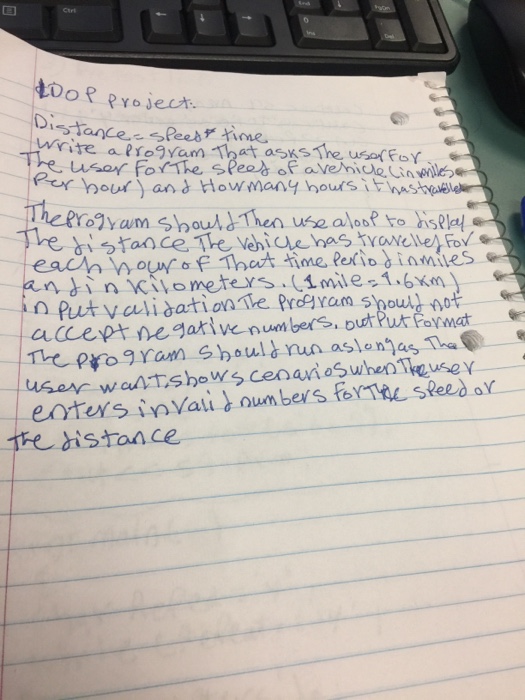 Ctrl
End
PgDn
0
Ins
Del
LOOP project.
Distance = speed * time
write a program That asks The user For
The user For The speed of a vehicle (in miles
Per hour) and How many hours it has travelled
The program should Then use a loop to display
The distance The vehicle has travelled For
each hour of That time Period in miles
and in kilometers. (1 mile = 1.6 km)
input validation The program should not
accept negative numbers. output Format
The program should run as long as The
user want. show scenarios when The user
enters invalid numbers for The speed or
the distance